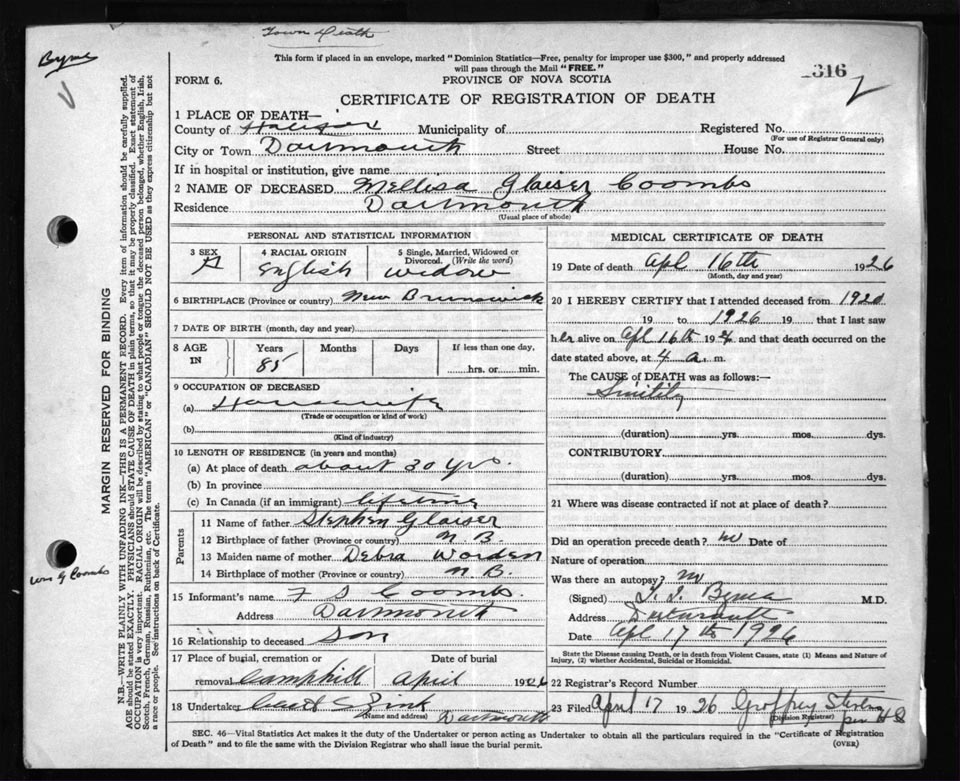 Town Death
Byrne
This form if placed in an envelope, marked "Dominion Statistics—Free, penalty for improper use $300," and properly addressed
will pass through the Mail "FREE."
316
FORM 6.
PROVINCE OF NOVA SCOTIA
CERTIFICATE OF REGISTRATION OF DEATH
1 PLACE OF DEATH—
County of Halifax Municipality of Registered No.
(For use of Registrar General only)
City or Town Dartmouth Street House No.
If in hospital or institution, give name
2 NAME OF DECEASED Mellisa Glaiser Coombs
Residence Dartmouth
(Usual place of abode)
PERSONAL AND STATISTICAL INFORMATION
3 SEX F
4 RACIAL ORIGIN English
5 Single, Married, Widowed or
Divorced. (Write the word)
widow
6 BIRTHPLACE (Province or country) New Brunswick
7 DATE OF BIRTH (month, day and year)
8 AGE IN Years Months Days If less than one day,
85 hrs. or min.
9 OCCUPATION OF DECEASED
(a) Housewife
(Trade or occupation or kind of work)
(b)
(Kind of industry)
10 LENGTH OF RESIDENCE (in years and months)
(a) At place of death about 30 yrs.
(b) In province
(c) In Canada (if an immigrant) lifetime
Parents
11 Name of father Stephen Glaiser
12 Birthplace of father (Province or country) N. B
13 Maiden name of mother Debra Worden
14 Birthplace of mother (Province or country) N. B.
15 Informant's name F S Coombs.
Address Dartmouth
16 Relationship to deceased Son
17 Place of burial, cremation or Date of burial
removal Camphill April 1926
18 Undertaker Zink
(Name and address) Dartmouth
MEDICAL CERTIFICATE OF DEATH
19 Date of death Apl 16th 1926
(Month, day and year)
20 I HEREBY CERTIFY that I attended deceased from 1920
19 to 1926 19 that I last saw
her alive on Apl 16th 192 and that death occurred on the
date stated above, at 4 a. m.
The CAUSE of DEATH was as follows:—
Senility
(duration) yrs. mos. dys.
CONTRIBUTORY
(duration) yrs. mos. dys.
21 Where was disease contracted if not at place of death?
Did an operation precede death? no Date of
Nature of operation
Was there an autopsy? no
(Signed) Byrne M.D.
Address Dartmouth
Date Apl 17th 1926
State the Disease causing Death, or in death from Violent Causes, state (1) Means and Nature of
Injury, (2) whether Accidental, Suicidal or Homicidal.
22 Registrar's Record Number
23 Filed April 17 1926 Geoffrey Stevens
(Division Registrar)
per
SEC. 46—Vital Statistics Act makes it the duty of the Undertaker or person acting as Undertaker to obtain all the particulars required in the "Certificate of Registration
of Death" and to file the same with the Division Registrar who shall issue the burial permit.
(OVER)
MARGIN RESERVED FOR BINDING
N.B.—WRITE PLAINLY WITH UNFADING INK—THIS IS A PERMANENT RECORD. Every item of information should be carefully supplied.
AGE should be stated EXACTLY. PHYSICIANS should STATE CAUSE OF DEATH in plain terms, so that it may be properly classified. Exact statement of
OCCUPATION is very important. RACIAL ORIGIN will be described by stating to what people or tongue the deceased person belonged, whether English, Irish,
Scotch, French, German, Russian, Ruthenian, etc. The terms "AMERICAN" or "CANADIAN" SHOULD NOT BE USED as they express citizenship but not
a race or people. See instructions on back of Certificate.
Wm G Coombs